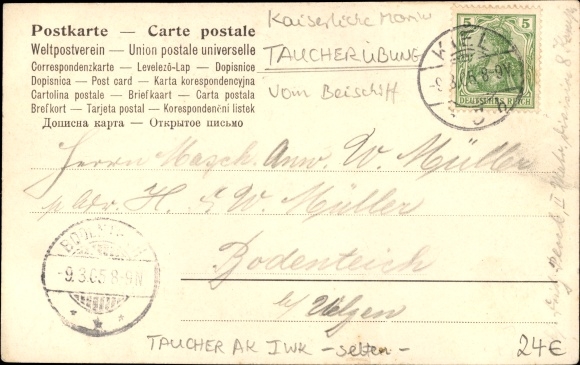 Postkarte — Carte postale
Weltpostverein — Union postale universelle
Correspondenzkarte — Levelező-Lap — Dopisnice
Dopisnica — Post card — Karta korespondencyjna
Cartolina postale — Briefkaart — Carta postala
Brefkort — Tarjeta postal — Korespondenční listek
Дописна карта — Открытое письмо
Kaiserliche Marine
TAUCHERÜBUNG
vom Beischiff
5 5
DEUTSCHES REICH
KIEL
8-9N
Herrn Masch. Anw. W. Müller
p. Adr. H. & W. Müller
Bodenteich
b/ Uelzen
-9.3.05. 8-9N
TAUCHER AK IWK - selten -
24€